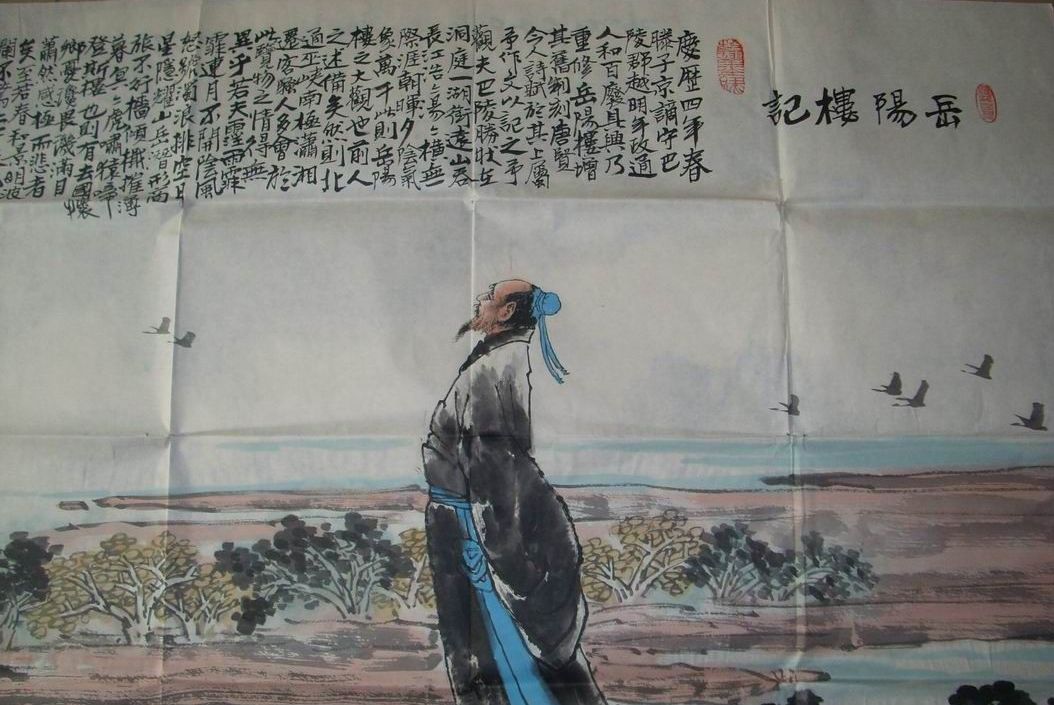 岳陽樓記
慶歷四年春
滕子京謫守巴
陵郡越明年政通
人和百廢具興乃
重修岳陽樓增
其舊制刻唐賢
今人詩賦於其上屬
予作文以記之予
觀夫巴陵勝狀在
洞庭一湖銜遠山吞
長江浩々湯々橫無
際涯朝暉夕陰氣
象萬千此則岳陽
樓之大觀也前人
之述備矣然則北
通巫峽南極瀟湘
遷客騷人多會於
此覽物之情得無
異乎若夫霪雨霏
霏連月不開陰風
怒號濁浪排空日
星隱耀山岳潛形商
旅不行檣傾楫摧薄
暮冥々虎嘯猿啼
登斯樓也則有去國懷
鄉憂讒畏譏滿目
蕭然感極而悲者
矣至若春和景明波
瀾不